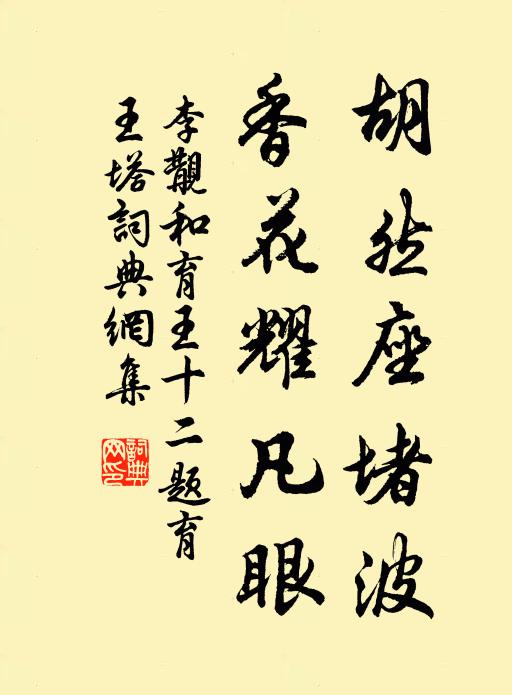 胡然座堵波
香花耀凡眼
李觏和育王十二题育
王塔詞典網集
詞典網印